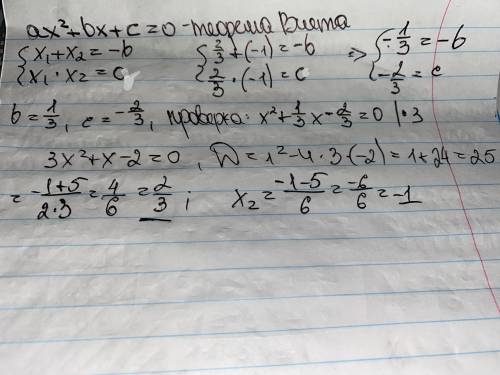 ax²+bx+c=0 - теорема Виета
{x₁+x₂=-b {2/3+(-1)=-b => {-1/3=-b
{x₁·x₂=c {2/3·(-1)=c {-2/3=c
b=1/3, c=-2/3, проверка: x²+1/3x-2/3=0 |·3
3x²+x-2=0, D=1²-4·3·(-2)=1+24=25
=(-1+5)/(2·3)=4/6=2/3; x₂=(-1-5)/6=-6/6=-1